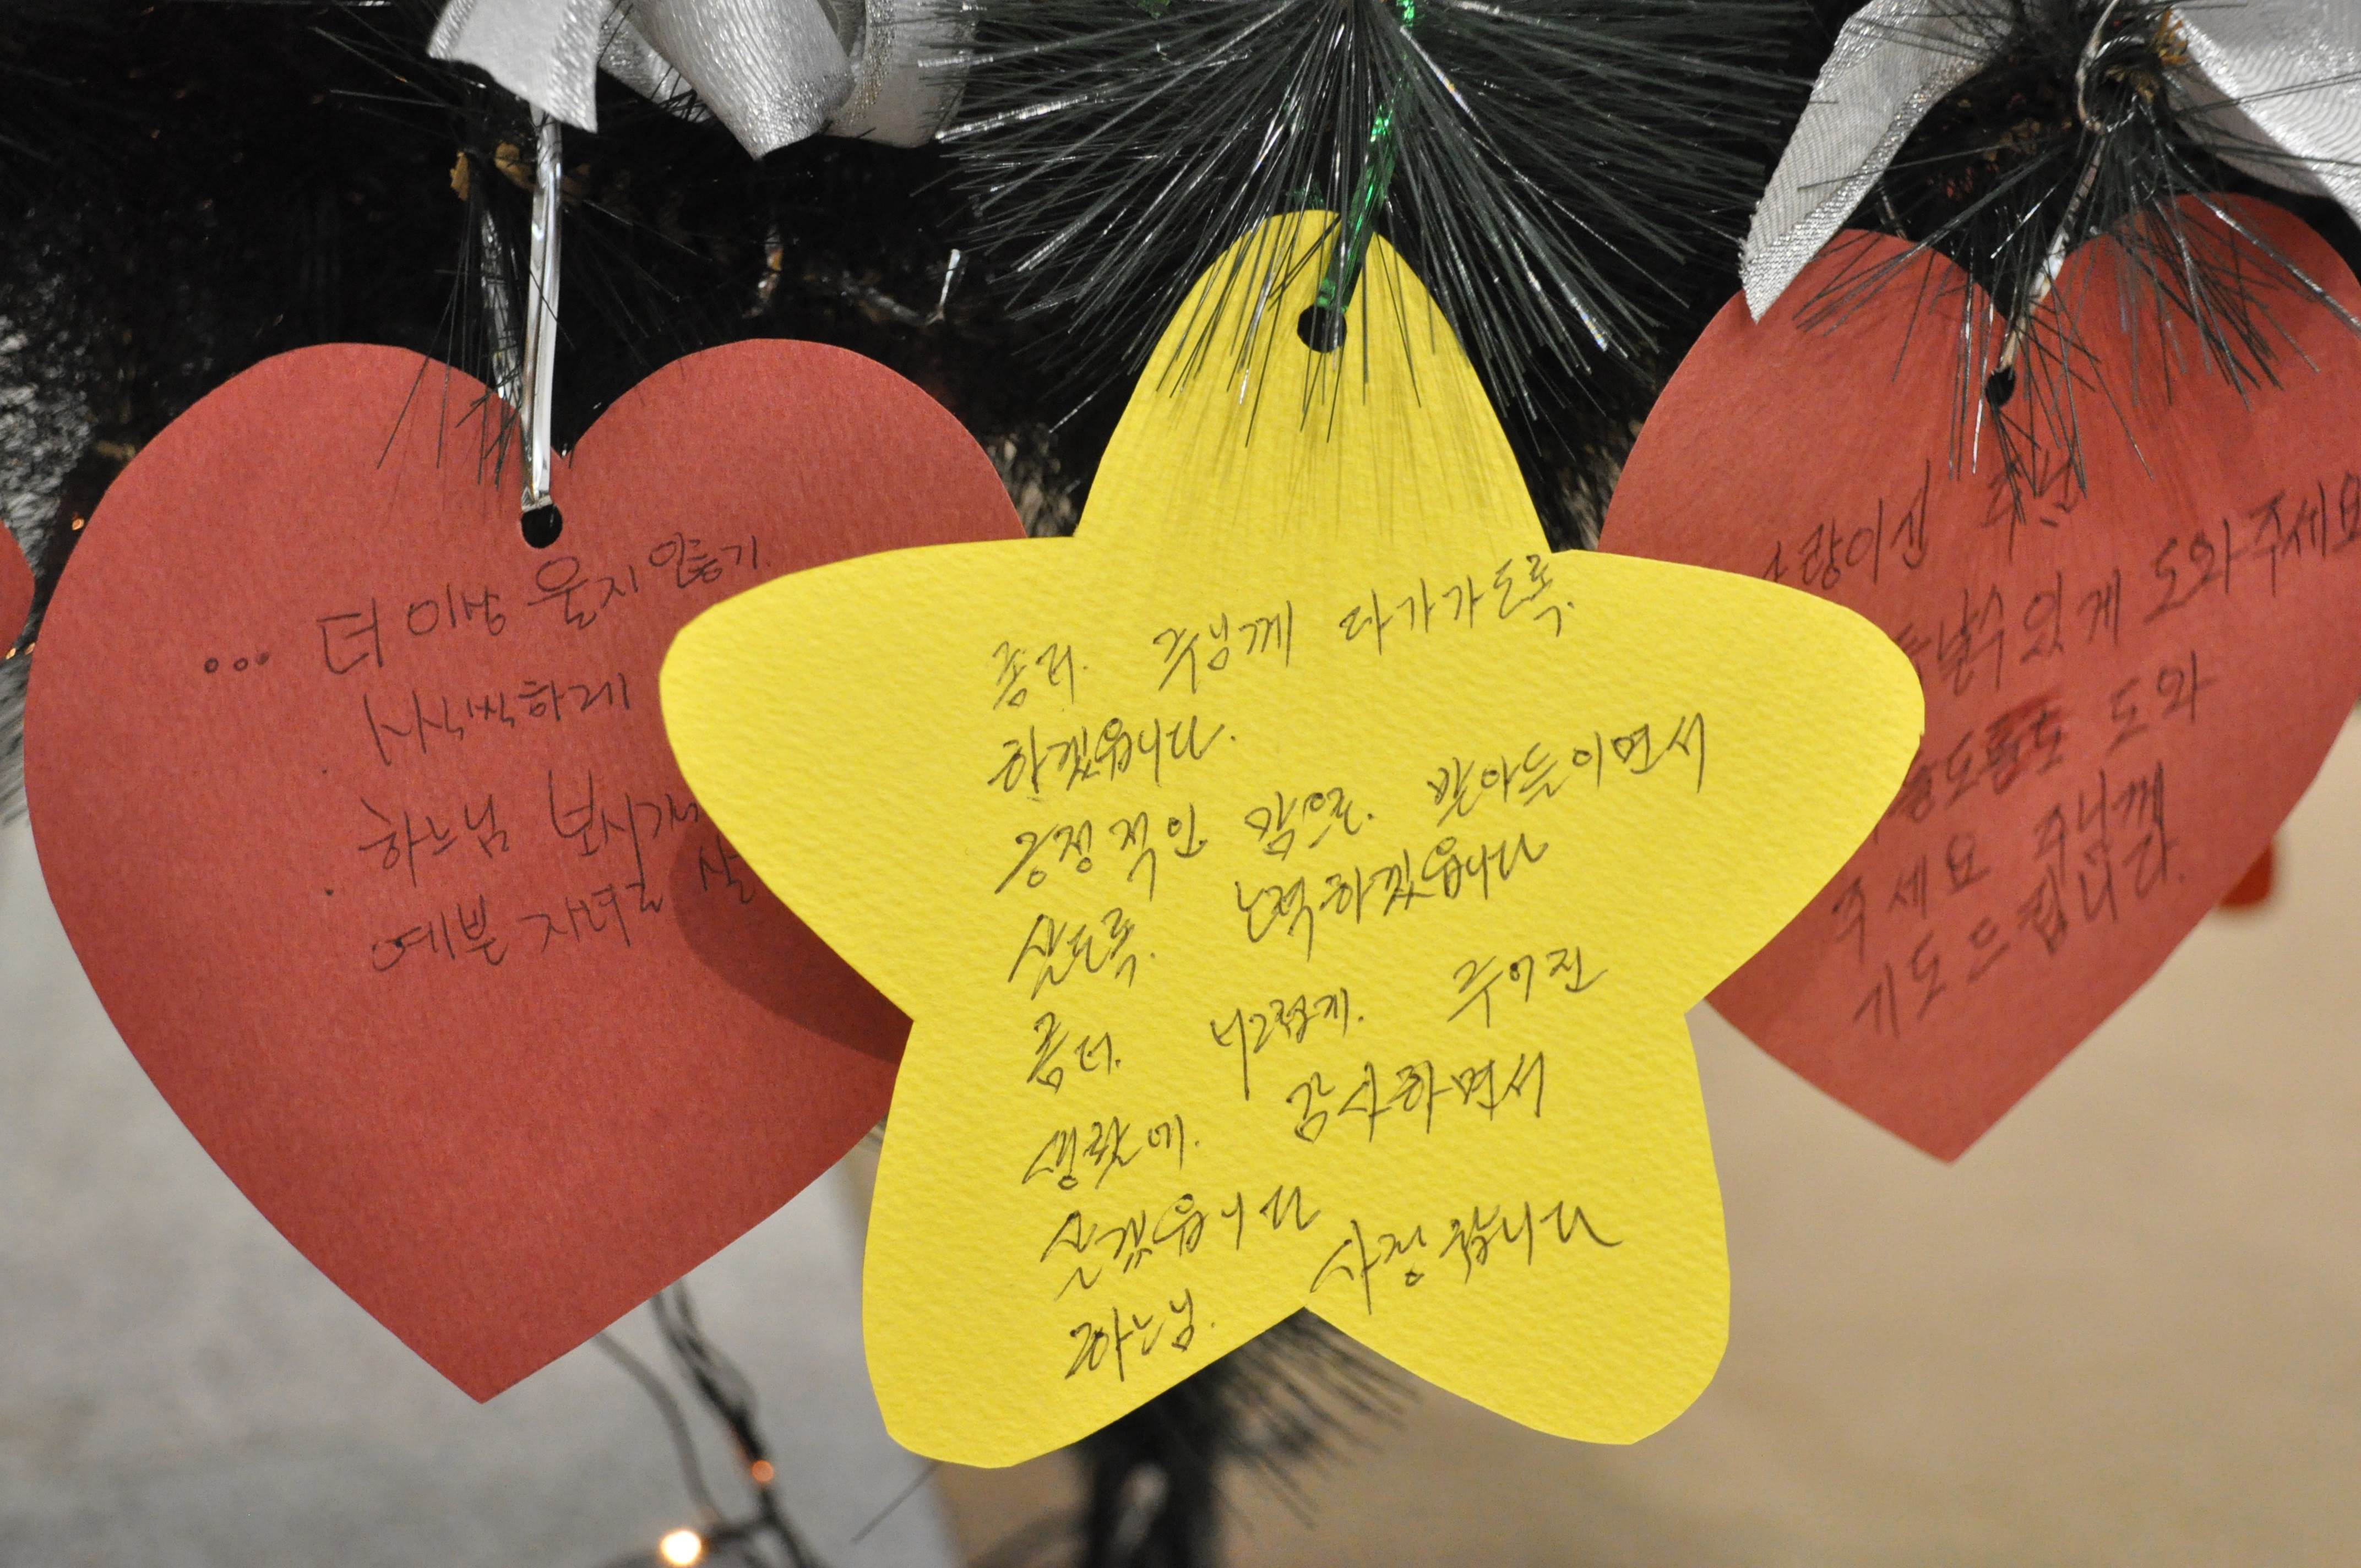 ... 더 이상 울지 않기.
. 씩씩하게
. 하느님 보시기에
예쁜 자녀로 살
좀더. 주님께 다가가도록.
하겠읍니다.
긍정적인 맘으로. 받아들이면서
살도록. 노력하겠읍니다
좀더. 너그럽게. 주어진
생활에. 감사하면서
살겠읍니다
하느님. 사랑합니다
사랑이신 주님
수 있게 도와주세요
도와
주세요 주님께
기도드립니다.